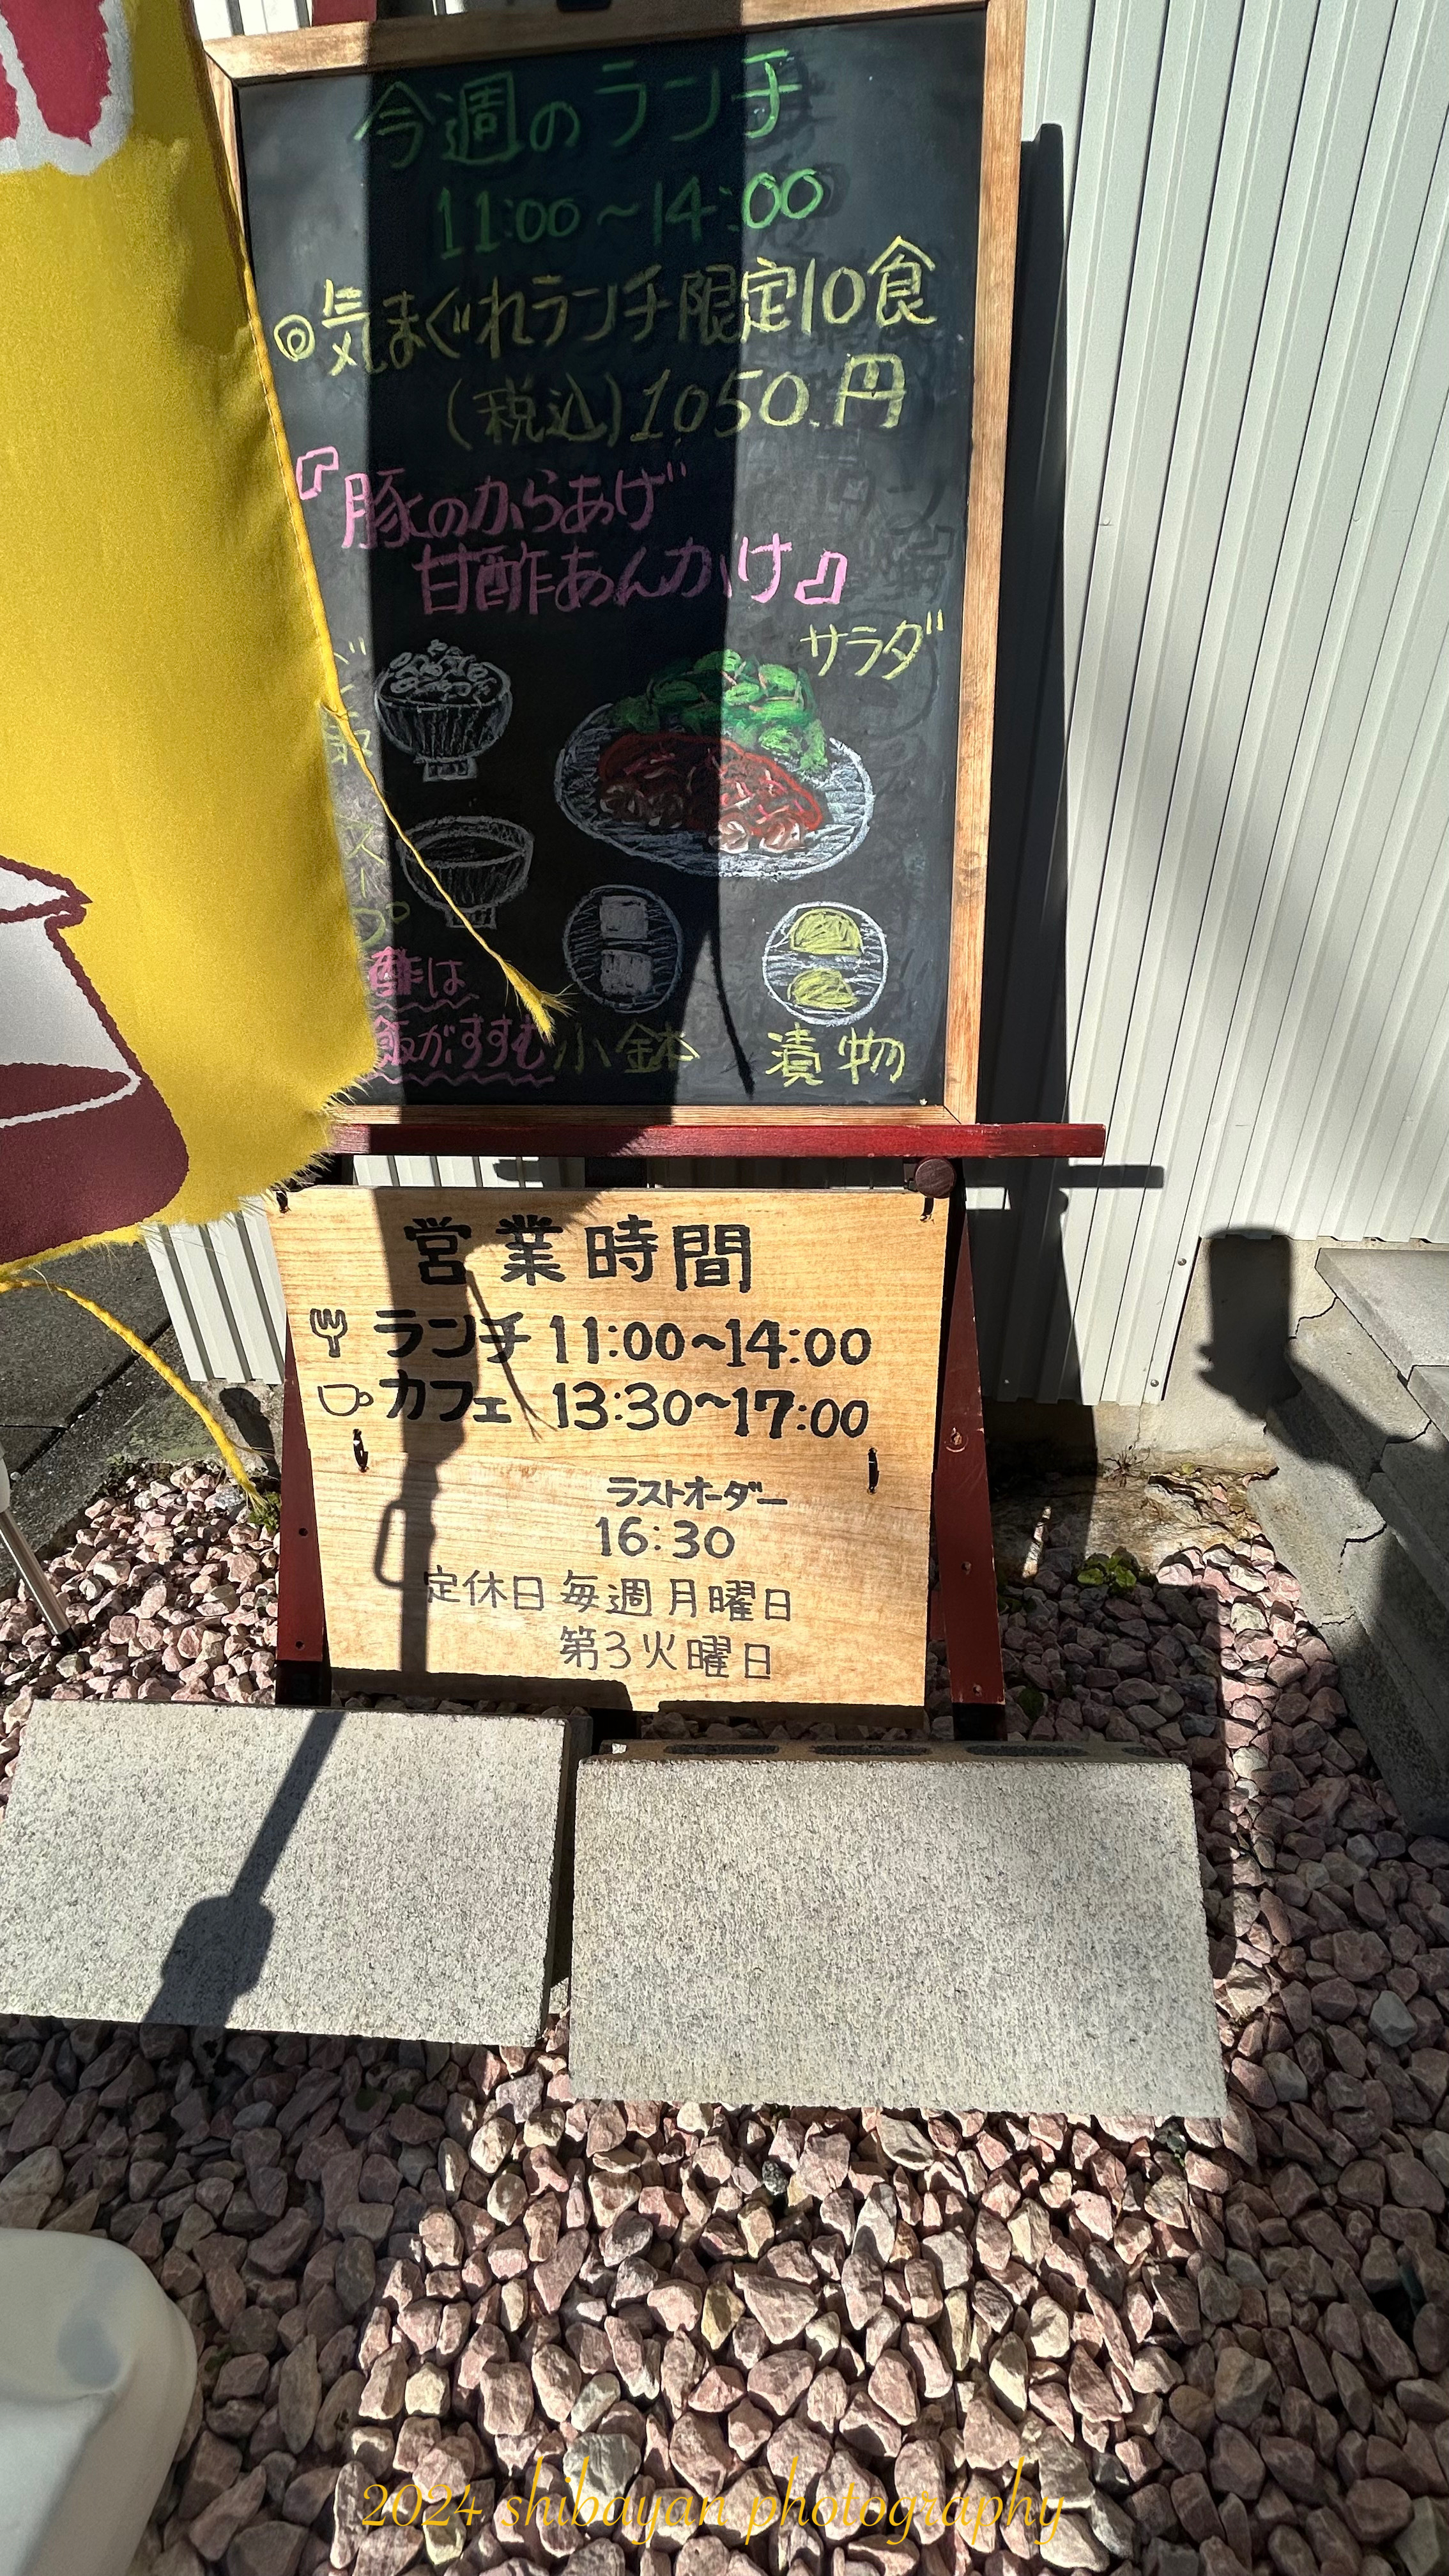 今週のランチ
11:00～14:00
◎気まぐれランチ限定10食
(税込)1050円
『豚のからあげ
甘酢あんかけ』
サラダ
スープ
酢は
飯がすすむ
小鉢
漬物
営業時間
ランチ 11:00～14:00
カフェ 13:30～17:00
ラストオーダー
16:30
定休日 毎週月曜日
第3火曜日
2024 shibayan photography